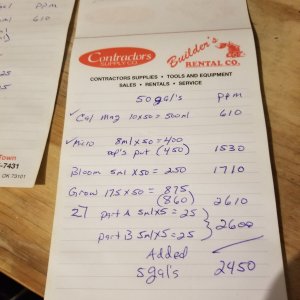 Contractors
SUPPLY CO.
Builder's
RENTAL CO.
CONTRACTORS SUPPLIES • TOOLS AND EQUIPMENT
SALES • RENTALS • SERVICE
50 gal's ppm
✓ Cal Mag 10x50 = 500ml 610
✓ Micro 8mlx50 = 400
put (450) 1530
Bloom 5ml x50 = 250 1710
Grow 17.5x50 = 875
(860) 2610
Part A 5mlx5 = 25
2600
Part B 5mlx5 = 25
Added
5gal's 2450
ppm
610
25
25
Town
-7431
OK 73101